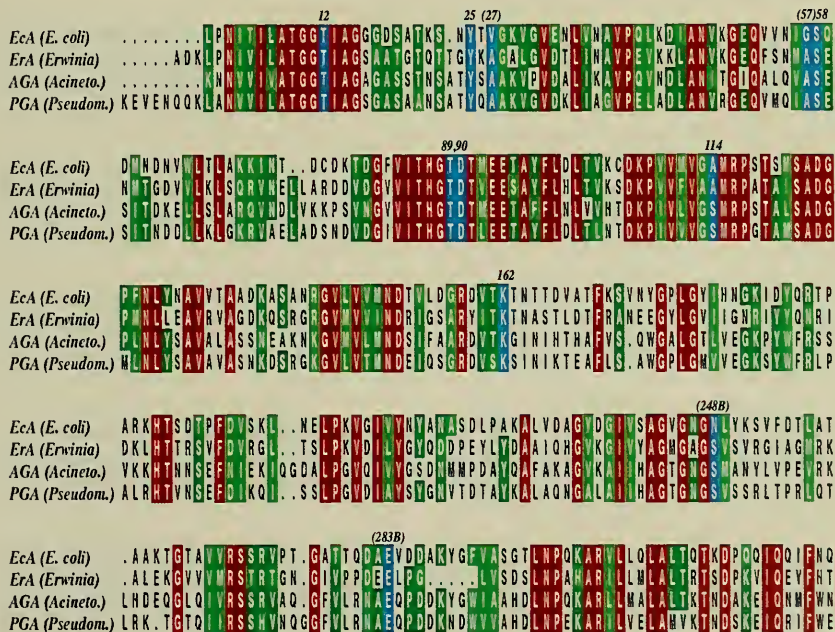 12 25 (27) (57)58
EcA (E. coli) ........LPNITILATGGTIAGGGDSATKS.NYTVGKVGVENLVNAVPQLKDIANVKGEQVVNIGSQ
ErA (Erwinia) .....ADKLPNIVILATGGTIAGSAATGTQTTGYKAGALGVDTLINAVPEVKKLANVKGEQFSNMASE
AGA (Acineto.) ........KNNVVIVATGGTIAGAGASSTNSATYSAAKVPVDALIKAVPQVNDLANITGIQALQVASE
PGA (Pseudom.) KEVENQQKLANVVILATGGTIAGSGASAANSATYQAAKVGVDKLIAGVPELADLANVRGEQVMQIASE
89,90 114
EcA (E. coli) DMNDNVWLTLAKKINT..DCDKTDGFVITHGTDTMEETAYFLDLTVKCDKPVVMVGAMRPSTSMSADG
ErA (Erwinia) NMTGDVVLKLSQRVNELLARDDVDGVVITHGTDTVEESAYFLHLTVKSDKPVVFVAAMRPATAISADG
AGA (Acineto.) SITDKELLSLARQVNDLVKKPSVNGVVITHGTDTMEETAFFLNLVVHTDKPIVLVGSMRPSTALSADG
PGA (Pseudom.) SITNDDLLKLGKRVAELADSNDVDGIVITHGTDTLEETAYFLDLTLNTDKPIVVVGSMRPGTAMSADG
162
EcA (E. coli) PFNLYNAVVTAADKASANRGVLVVMNDTVLDGRDVTKTNTTDVATFKSVNYGPLGYIHNGKIDYQRTP
ErA (Erwinia) PMNLLEAVRVAGDKQSRGRGVMVVLNDRIGSARYITKTNASTLDTFRANEEGYLGVIIGNRIYYQNRI
AGA (Acineto.) PLNLYSAVALASSNEAKNKGVMVLMNDSIFAARDVTKGINIHTHAFVS.QWGALGTLVEGKPYWFRSS
PGA (Pseudom.) MLNLYSAVAVASNKDSRGKGVLVTMNDEIQSGRDVSKSINIKTEAFLS.AWGPLGMVVEGKSYWFRLP
(248B)
EcA (E. coli) ARKHTSDTPFDVSKL..NELPKVGIVYNYANASDLPAKALVDAGYDGIVSAGVGNGNLYKSVFDTLAT
ErA (Erwinia) DKLHTTRSVFDVRGL..TSLPKVDILYGYQDDPEYLYDAAIQHGVKGIVYAGMGAGSVSVRGIAGMRK
AGA (Acineto.) VKKHTNNSEFNIEKIQGDALPGVQIVYGSDNMMPDAYQAFAKAGVKAIIHAGTGNGSMANYLVPEVRK
PGA (Pseudom.) ALRHTVNSEFDIKQI..SSLPGVDIAYSYGNVTDTAYKALAQNGALALIHAGTGNGSVSSRLTPRLQT
(283B)
EcA (E. coli) .AAKTGTAVVRSSRVPT.GATTQDAEVDDAKYGFVASGTLNPQKARVLLQLALTQTKDPQQIQQIFNQ
ErA (Erwinia) .ALEKGVVVMRSTRTGN.GIVPPDEELPG.....LVSDSLNPAHARILLMLALTRTSDPKVIQEYFHT
AGA (Acineto.) LHDEQGLQIVRSSRVAQ.GFVLRNAEQPDDKYGWIAAHDLNPQKARLLMALALTKTNDAKEIQNMFWN
PGA (Pseudom.) LRK.TGTQIIRSSHVNQGGFVLRNAEQPDDKNDWVVAHDLNPEKARILVELAMVKTNDSKEIQRIFWE